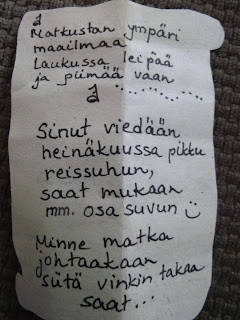 ♪
Matkustan ympäri
maailmaa
Laukussa leipää
ja piimää vaan
♪ ............
Sinut viedään
heinäkuussa pikku
reissuhun,
saat mukaan
mm. osa suvun ☺
Minne matka
johtaakaan
siitä vinkin takaa
saat...